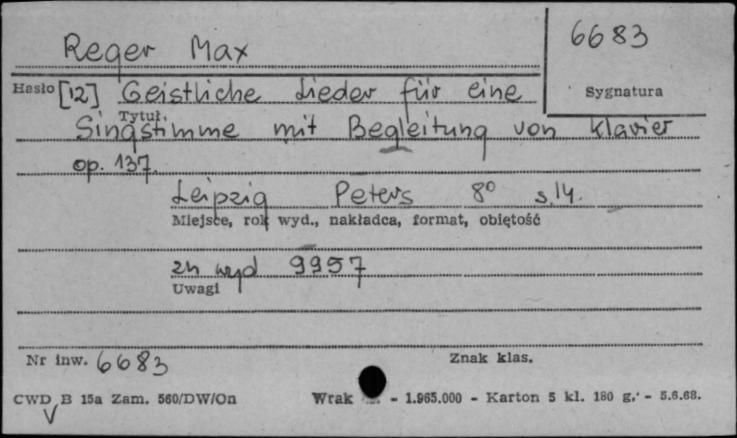 Reger Max
6683
Hasło [12] Geistliche Lieder für eine
Sygnatura
Tytuł
Singstimme mit Begleitung von Klavier
op. 137.
Leipzig Peters 8° s. 14.
Miejsce, rok wyd., nakładca, format, objętość
zn wyd 9957
Uwagi
Nr inw. 6683
Znak klas.
CWD B 15a Zam. 560/DW/On Wrak - 1.965.000 - Karton 5 kl. 180 g. - 5.6.68.
V